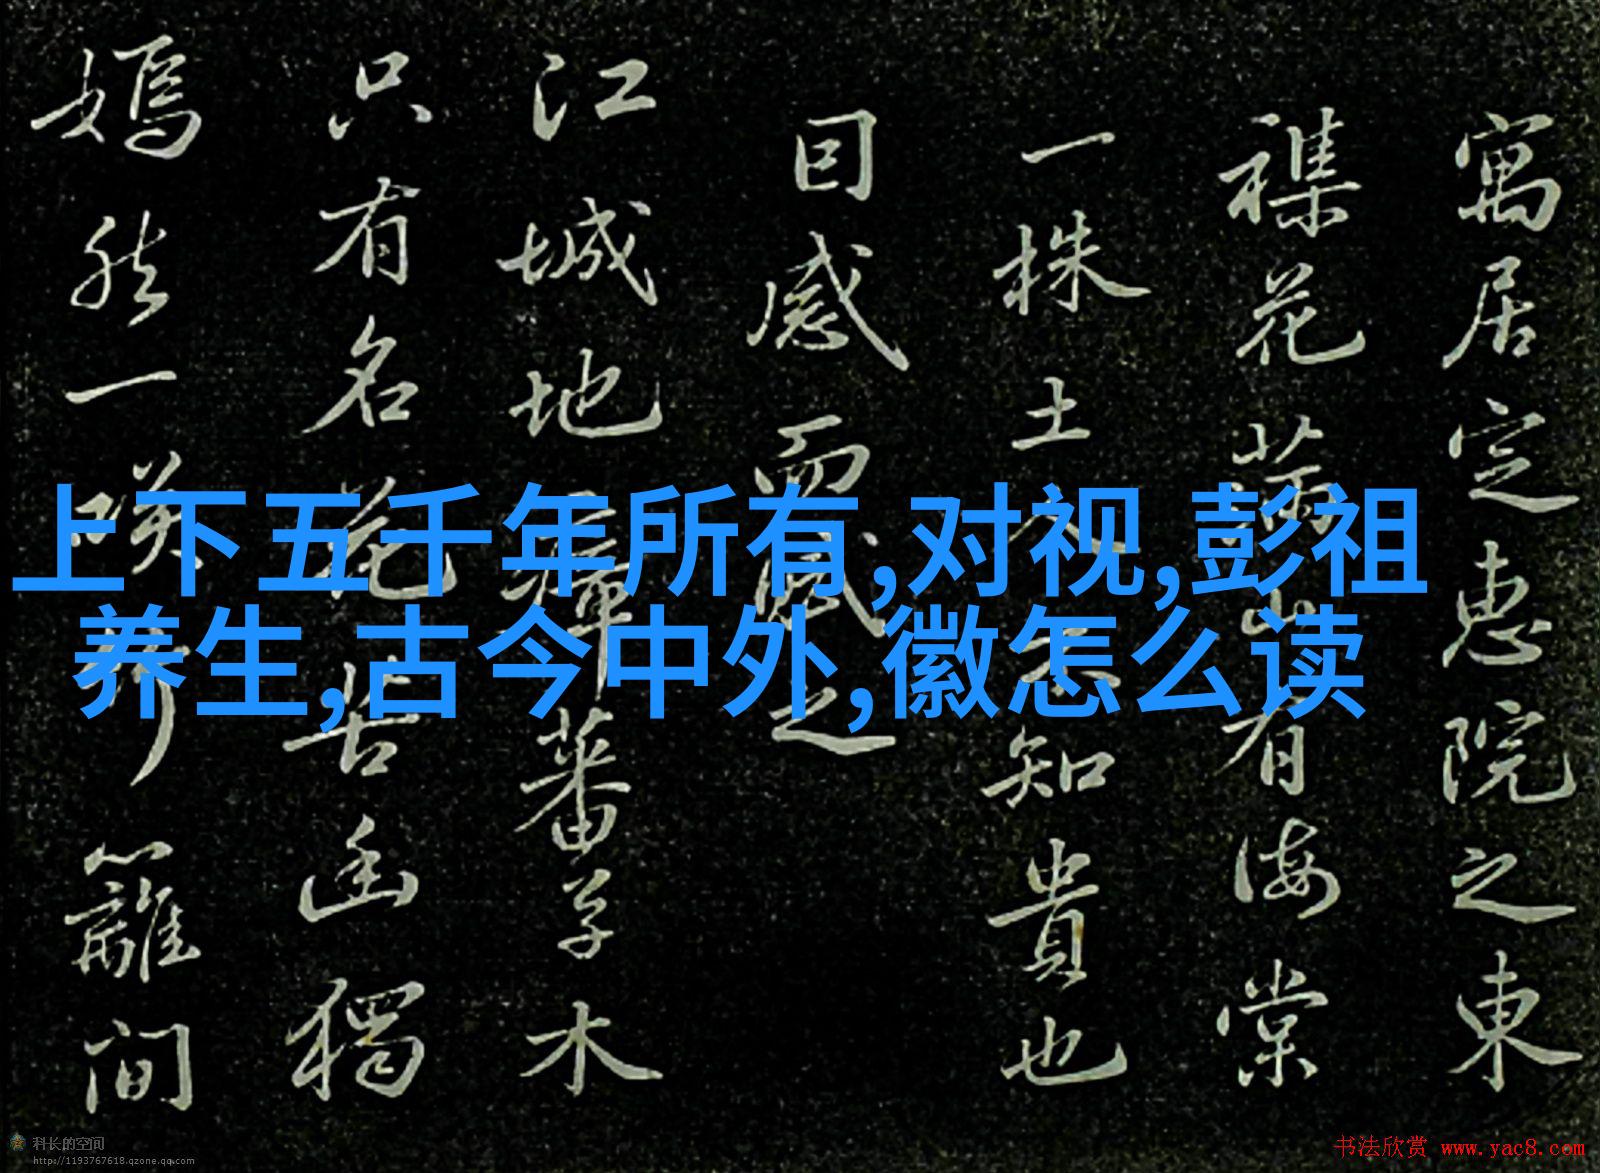 寓居定惠院之東
襍花滿山有海棠
一株土人不知貴也
因感而賦之
江城地瘴蕃草木
只有名花苦幽獨
嫣然一咲竹籬間
上下五千年所有,对视,彭祖
养生,古今中外,徽怎么读
科长的空间
http://1193767618.qzone.qq.com
书法欣赏 www.yac8.com